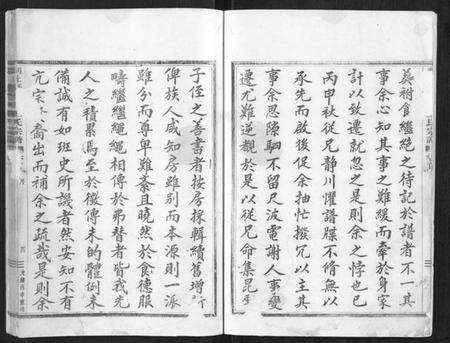 葬祔食繼絶之待記於譜者不一其
事余心知其事之難緩而牽於身家
計以致遷就忽之是則余之悖也已
丙申秋從兄靜川懼譜牒不脩無以
承先而啟後促余抽忙掇冗以主其
事余思隙駟不留尺波電謝人事變
遷尤難逆覩於是以從兄命集昆
子侄之善書者按房採輯續舊增
俾族人咸知房雖別而本源則一派
雖分而尊卑難紊且曉然於食德服
疇繼繼繩繩相傳於弗替者皆我先
人之積累焉至於徵傳未的體例未
備誠有如班史所譏者然安知不有
亢宗 喬出而補余之疏哉是則余